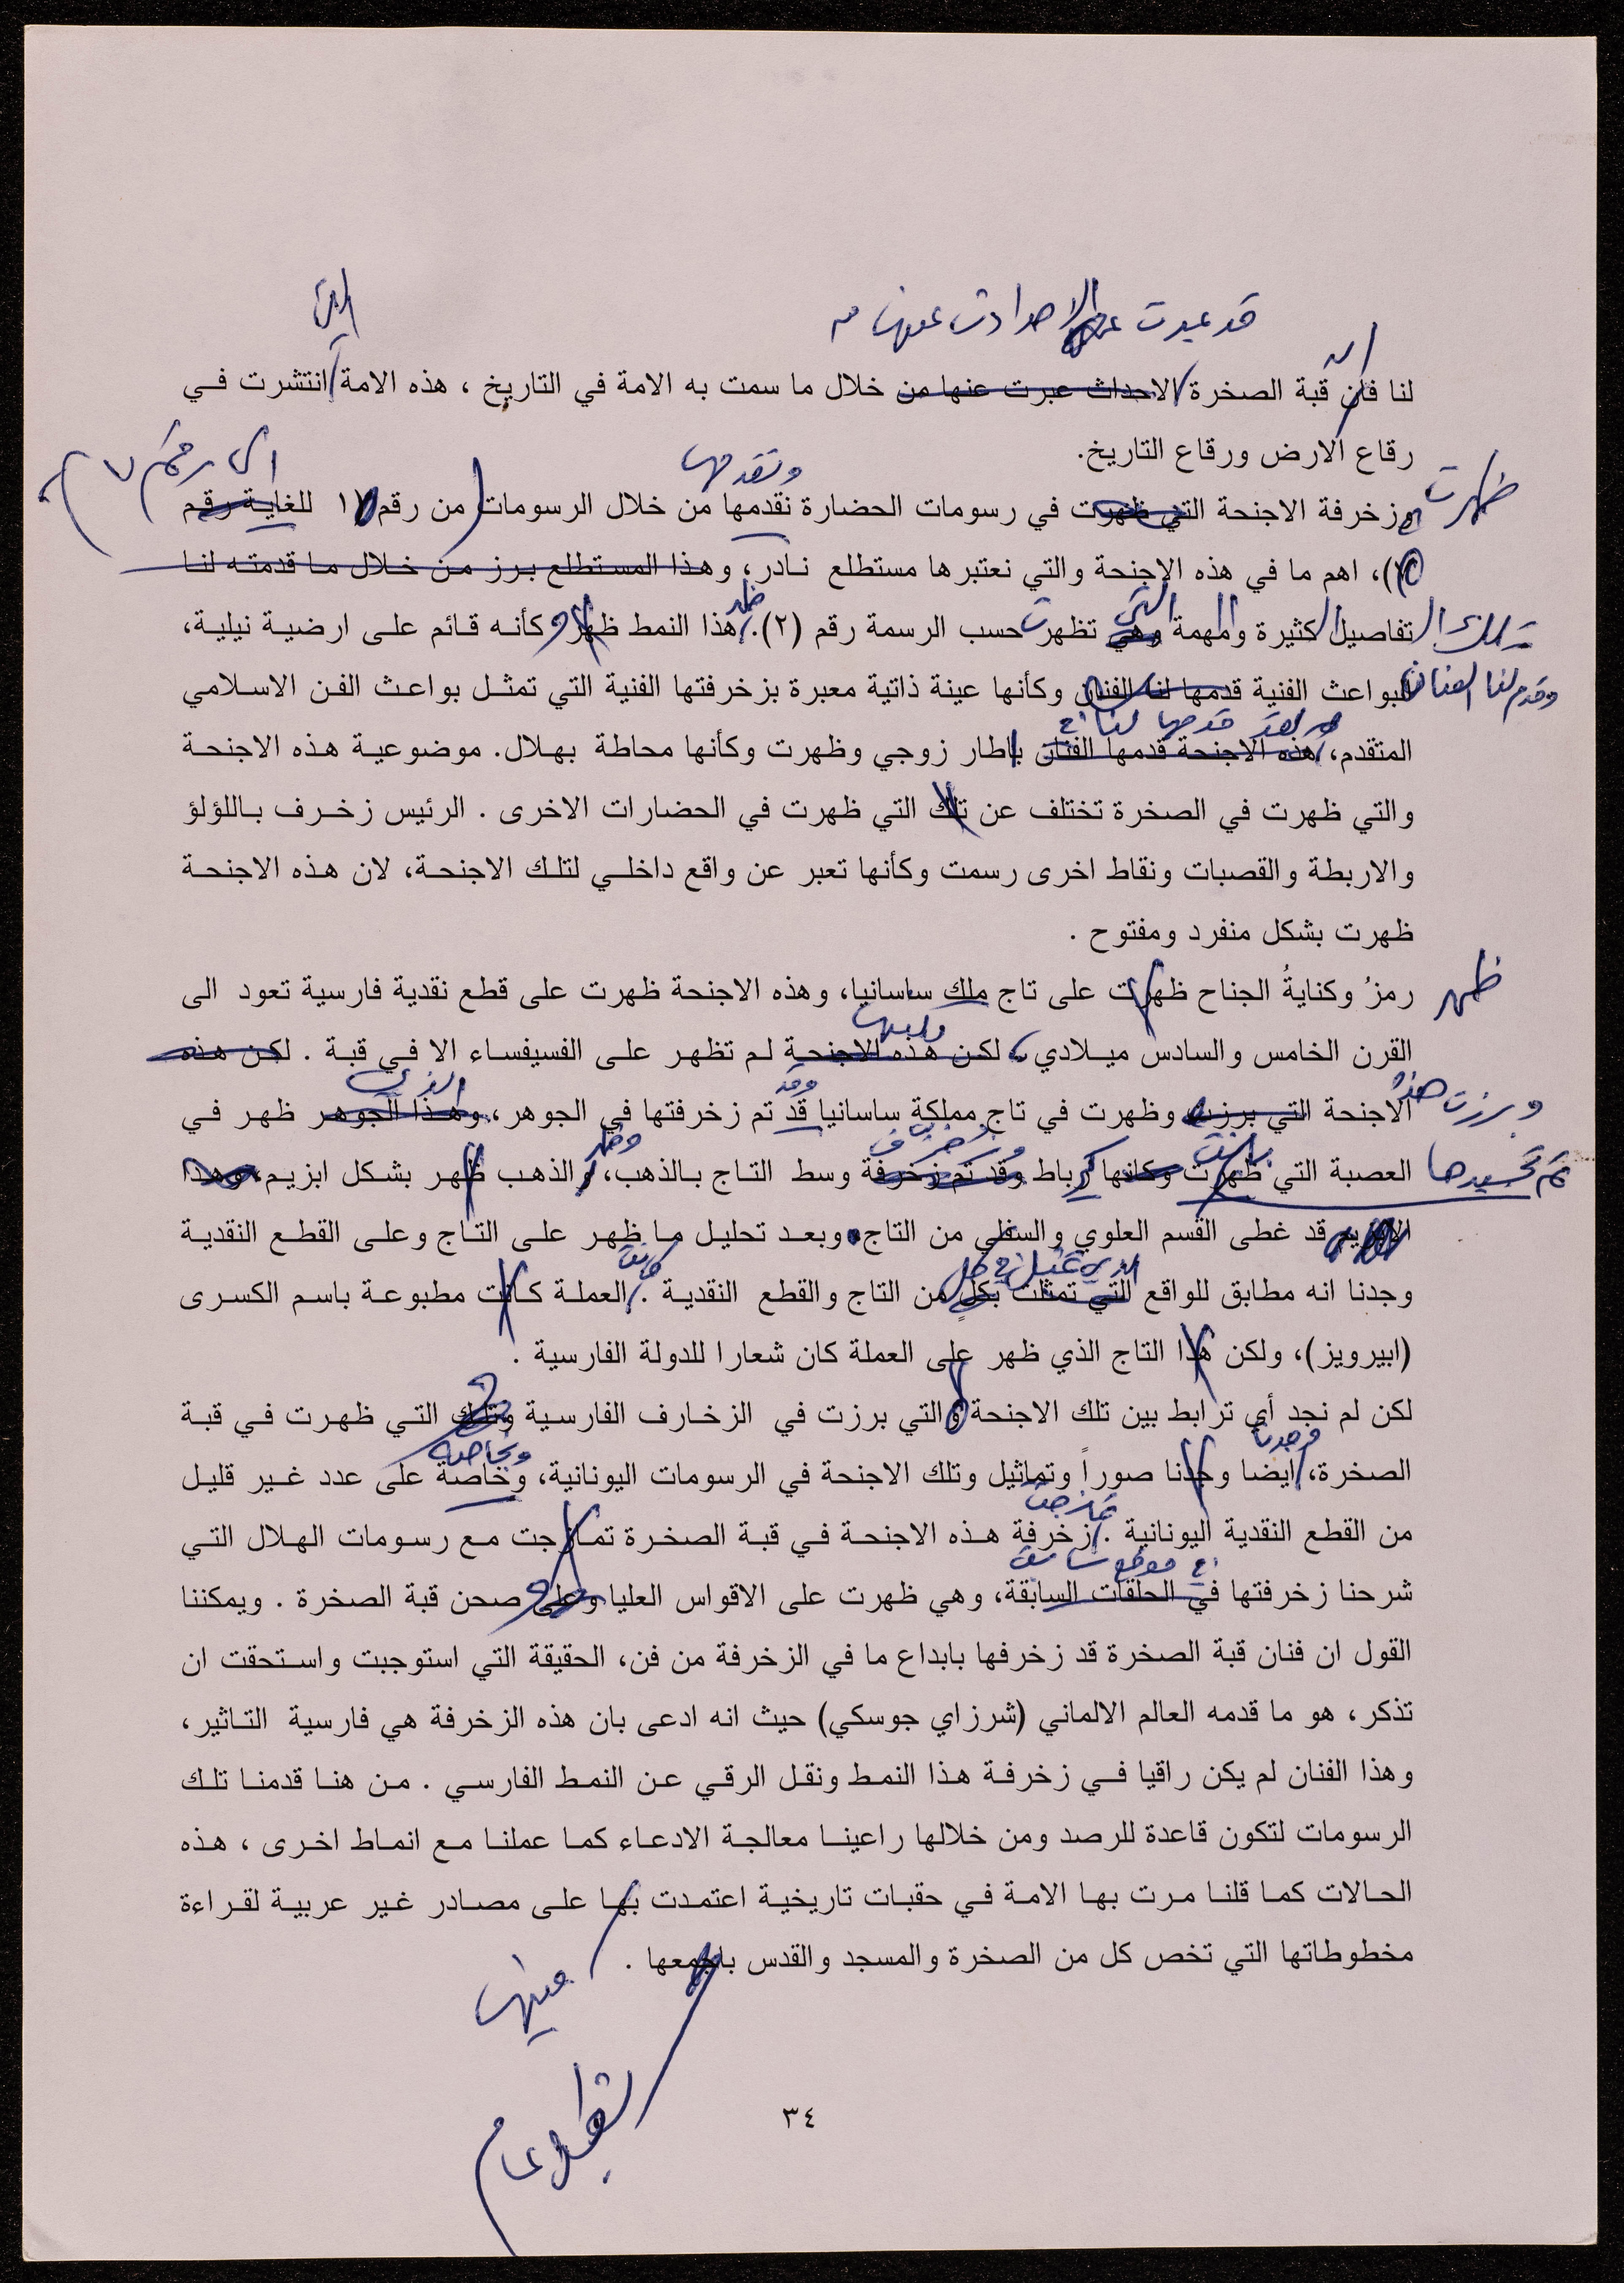 التي
قد عبرت عن الاحداث عنها من
ان
لنا فان قبة الصخرة الاحداث عبرت عنها من خلال ما سمت به الامة في التاريخ ، هذه الامة انتشرت في
رقاع الارض ورقاع التاريخ.
ظهرت ونقدمها الى رقم ٧
وزخرفة الاجنحة التي ظهرت في رسومات الحضارة نقدمها من خلال الرسومات (من رقم ١ للغاية رقم
٧)، اهم ما في هذه الاجنحة والتي نعتبرها مستطلع نادر، وهذا المستطلع برز من خلال ما قدمته لنا
تلك ال ال ال التي ت ظهر
تفاصيل كثيرة ومهمة وهي تظهر حسب الرسمة رقم (٢). هذا النمط ظهر وكأنه قائم على ارضية نيلية،
وقدم لنا الفنان
البواعث الفنية قدمها لنا الفنان وكأنها عينة ذاتية معبرة بزخرفتها الفنية التي تمثل بواعث الفن الاسلامي
لقد قدمها لنا في
المتقدم، هذه الاجنحة قدمها الفنان باطار زوجي وظهرت وكأنها محاطة بهلال. موضوعية هذه الاجنحة
والتي ظهرت في الصخرة تختلف عن تلك التي ظهرت في الحضارات الاخرى . الرئيس زخرف باللؤلؤ
والاربطة والقصبات ونقاط اخرى رسمت وكأنها تعبر عن واقع داخلي لتلك الاجنحة، لان هذه الاجنحة
ظهرت بشكل منفرد ومفتوح .
ظهر
رمزُ وكنايةُ الجناح ظهرت على تاج ملك ساسانيا، وهذه الاجنحة ظهرت على قطع نقدية فارسية تعود الى
ولكنها
القرن الخامس والسادس ميلادي، لكن هذه الاجنحة لم تظهر على الفسيفساء الا في قبة . لكن هذه
وبرزت هذه وقد الذي
الاجنحة التي برزت وظهرت في تاج مملكة ساسانيا قد تم زخرفتها في الجوهر، وهذا الجوهر ظهر في
تم تجسيدها وظهر
العصبة التي ظهرت وكانها كرباط وقد تم زخرفة وسط التاج بالذهب، والذهب ظهر بشكل ابزيم، وهذا
الابزيم قد غطى القسم العلوي والسفلي من التاج. وبعد تحليل ما ظهر على التاج وعلى القطع النقدية
الذي تمثل في كل كانت
وجدنا انه مطابق للواقع التي تمثلت بكلٍ من التاج والقطع النقدية . العملة كانت مطبوعة باسم الكسرى
(ابيرويز)، ولكن هذا التاج الذي ظهر على العملة كان شعارا للدولة الفارسية .
لكن لم نجد أي ترابط بين تلك الاجنحة والتي برزت في الزخارف الفارسية وتلك التي ظهرت في قبة
وجدنا وبخاصة
الصخرة، ايضا وجدنا صوراً وتماثيل وتلك الاجنحة في الرسومات اليونانية، وخاصة على عدد غير قليل
تمازجت
من القطع النقدية اليونانية . زخرفة هذه الاجنحة في قبة الصخرة تمازجت مع رسومات الهلال التي
في موقع سابق
شرحنا زخرفتها في الحلقات السابقة، وهي ظهرت على الاقواس العليا وعلى صحن قبة الصخرة . ويمكننا
القول ان فنان قبة الصخرة قد زخرفها بابداع ما في الزخرفة من فن، الحقيقة التي استوجبت واستحقت ان
تذكر، هو ما قدمه العالم الالماني (شرزاي جوسكي) حيث انه ادعى بان هذه الزخرفة هي فارسية التاثير،
وهذا الفنان لم يكن راقيا في زخرفة هذا النمط ونقل الرقي عن النمط الفارسي . من هنا قدمنا تلك
الرسومات لتكون قاعدة للرصد ومن خلالها راعينا معالجة الادعاء كما عملنا مع انماط اخرى ، هذه
الحالات كما قلنا مرت بها الامة في حقبات تاريخية اعتمدت بها على مصادر غير عربية لقراءة
مخطوطاتها التي تخص كل من الصخرة والمسجد والقدس باجمعها .
فيها
بشكل عام
٣٤